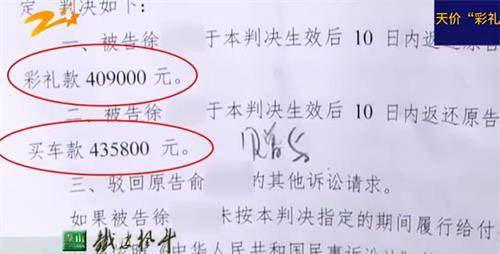 定，判决如下：
天价“彩礼
一、被告徐 于本判决生效后 10 日内返还原告
彩礼款 409000 元。
二、被告徐 于本判决生效后 10 日内返还原告
买车款 435800 元。
三、驳回原告俞 的其他诉讼请求。
如果被告徐 未按本判决指定的期间履行给付
中华人民共和国民事诉讼法